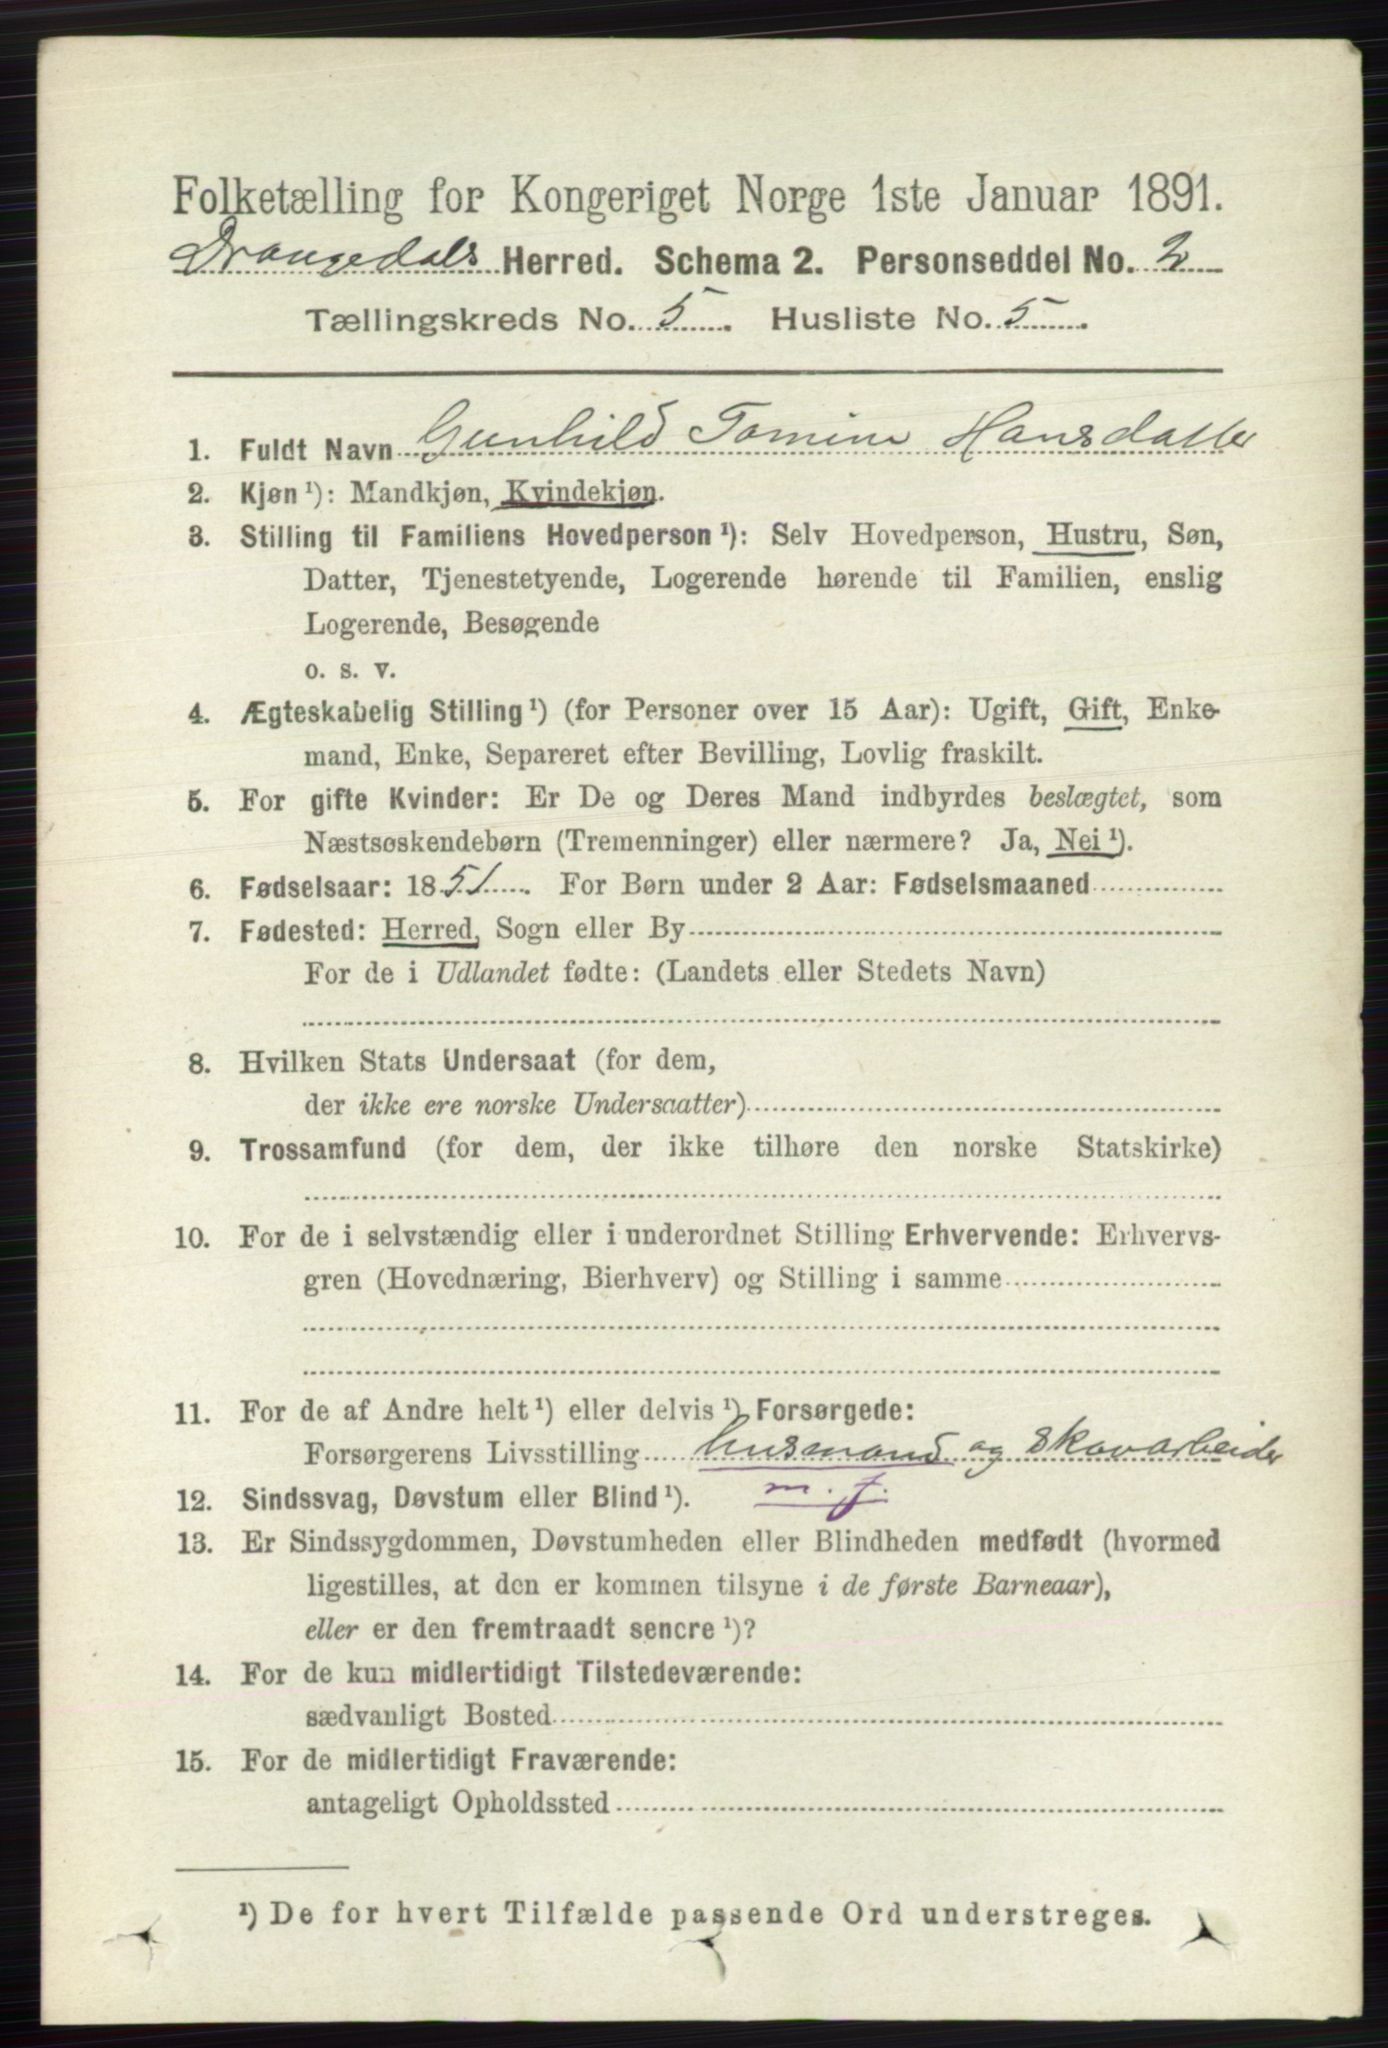 Folketælling for Kongeriget Norge 1ste Januar 1891.
Drangedals Herred. Schema 2. Personseddel No. 2
Tællingskreds No. 5. Husliste No. 5.
1. Fuldt Navn Gunhild Tomine Hansdatter
2. Kjøn ¹): Mandkjøn, Kvindekjøn.
3. Stilling til Familiens Hovedperson ¹): Selv Hovedperson, Hustru, Søn,
Datter, Tjenestetyende, Logerende hørende til Familien, enslig
Logerende, Besøgende
o. s. v.
4. Ægteskabelig Stilling ¹) (for Personer over 15 Aar): Ugift, Gift, Enke-
mand, Enke, Separeret efter Bevilling, Lovlig fraskilt.
5. For gifte Kvinder: Er De og Deres Mand indbyrdes beslægtet, som
Næstsøskendebørn (Tremenninger) eller nærmere? Ja, Nei ¹).
6. Fødselsaar: 1851. For Børn under 2 Aar: Fødselsmaaned
7. Fødested: Herred, Sogn eller By
For de i Udlandet fødte: (Landets eller Stedets Navn)
8. Hvilken Stats Undersaat (for dem,
der ikke ere norske Undersaatter)
9. Trossamfund (for dem, der ikke tilhøre den norske Statskirke)
10. For de i selvstændig eller i underordnet Stilling Erhvervende: Erhvervs-
gren (Hovednæring, Bierhverv) og Stilling i samme
11. For de af Andre helt ¹) eller delvis ¹) Forsørgede:
Forsørgerens Livsstilling husmand og skovarbeider
12. Sindssvag, Døvstum eller Blind ¹). m. j.
13. Er Sindssygdommen, Døvstumheden eller Blindheden medfødt (hvormed
ligestilles, at den er kommen tilsyne i de første Barneaar),
eller er den fremtraadt senere ¹)?
14. For de kun midlertidigt Tilstedeværende:
sædvanligt Bosted
15. For de midlertidigt Fraværende:
antageligt Opholdssted
¹) De for hvert Tilfælde passende Ord understreges.